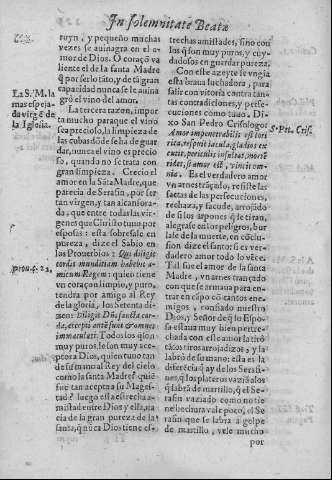 In solemnitate Beatæ
ruyn, y pequeño muchas
vezes se auinagra en el a-
mor de Dios. O coraçõ va
liente el de la santa Madre
q̃ por ser lo tãto, y de tã gran
capacidad nunca se le auina
gró el vino del amor.
La tercera razon, impor
ta mucho paraque el vino
sea precioso, la limpieza de
las cubas dõ se ha de guar
dar, nunca el vino es precio
so, quando no se trata con
gran limpieza. Crecio el
amor en la Sãta Madre, que
parecia de Serafin, por ser
tan virgen, y tan alcanfora-
da, que entre todas las vir-
genes que Christo tuuo por
esposas: esta sobresale en
pureza, dize el Sabio en
los Prouerbios: Qui diligit
cordis munditiam habebit a-
micum Regem: quien tiene
vn coraçon limpio, y puro,
tendra por amigo al Rey
de la gloria, los Setenta di
zen: Diligit Dñs sancta cor-
da, accepti ante sunt & omnes
immaculati. Todos los q̃ son
muy puros, le son muy ace
ptos a Dios, quien tuuo tan
de su mano al Rey del cielo
como la santa Madre? quiẽ
fue tan acepta a su Mages-
tad? luego ella estrecha a-
mistad entre Dios y ella, na
cia de la gran pureza de la
santa, q̃ nũca Dios tiene es-
La S. M. la
mas espeja-
da virgẽ de
la Iglesia.
prou. 4. 23.
trechas amistades, sino con
los q̃ son muy puros, y cuy-
dadosos en guardar pureza.
Con este azeyte se vngia
esta braua luchadora, para
salir con vitoria contra tan
tas contradiciones, y perse-
cuciones como tuuo. Di-
xo San Pedro Crisologo:
Amor impenetrabilis est lori
ca, respuit iacula, gladios ex
cutit, periculis insultat, morti
ridet, si amor est, vincit om-
nia. Es el verdadero amor
vn arnes trãçado, resiste las
saetas de las persecuciones,
rechaza, y sacude, arrojado
de si los arpones q̃ le tiran,
alegrase en los peligros, bur
lase de la muerte, en cõclu-
sion dize el santo: si es ver-
dadero amor todo lo vẽce.
Tal fue el amor de la santa
Madre, vn arnes trançado
con que se armaua para en-
trar en campo cõ tantos ene-
migos, confiado nuestro
Dios, y Señor de q̃ su Espo-
sa estaua muy bien pertre-
chada con este amor la tirò
tãtos tiros arrojadizos, y la
labrò de su mano; ella es la
diferẽcia q̃ ay de los Serafi
nes: q̃ los plateros vaziã los q̃
labrã de martillo, q̃ el Se-
rafin vaziado como no tie
ne hechura vale poco, el Se
rafin que se labra a golpe
de martillo, vele mucho
S. Pet. Cris.
por